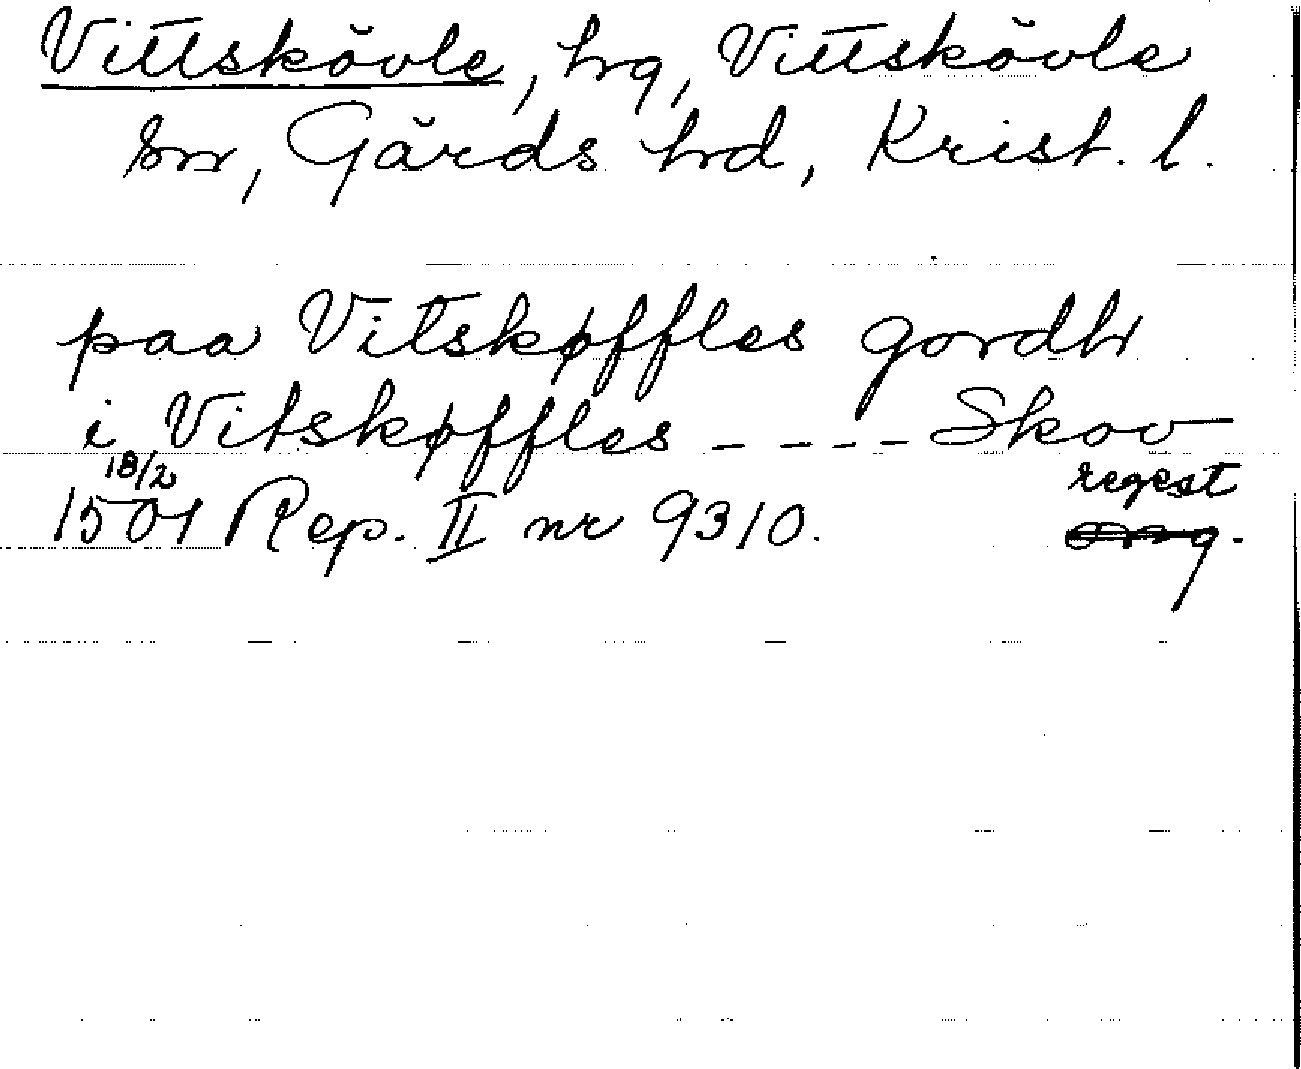 Vittskövle, hrg, Vittskövle
sn, Gärds hrd, Krist. l.
paa Vitskøffles gordh
i Vitskøffles - - - - Skov
18/2 regest
1501 Rep. II nr 9310.